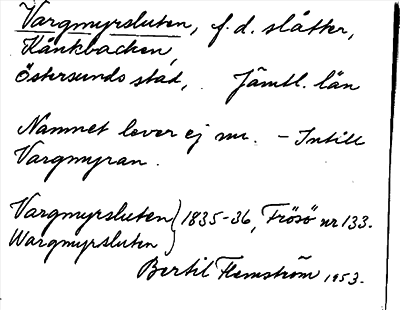 Vargmyrsluten, f.d. slåtter,
Hänkbacken,
Östersunds stad, Jämtl. län
Namnet lever ej nu. – Intill
Vargmyran.
Vargmyrsluten } 1835-36, Frösö nr 133.
Wargmyrsluten
Bertil Flemström 1953.